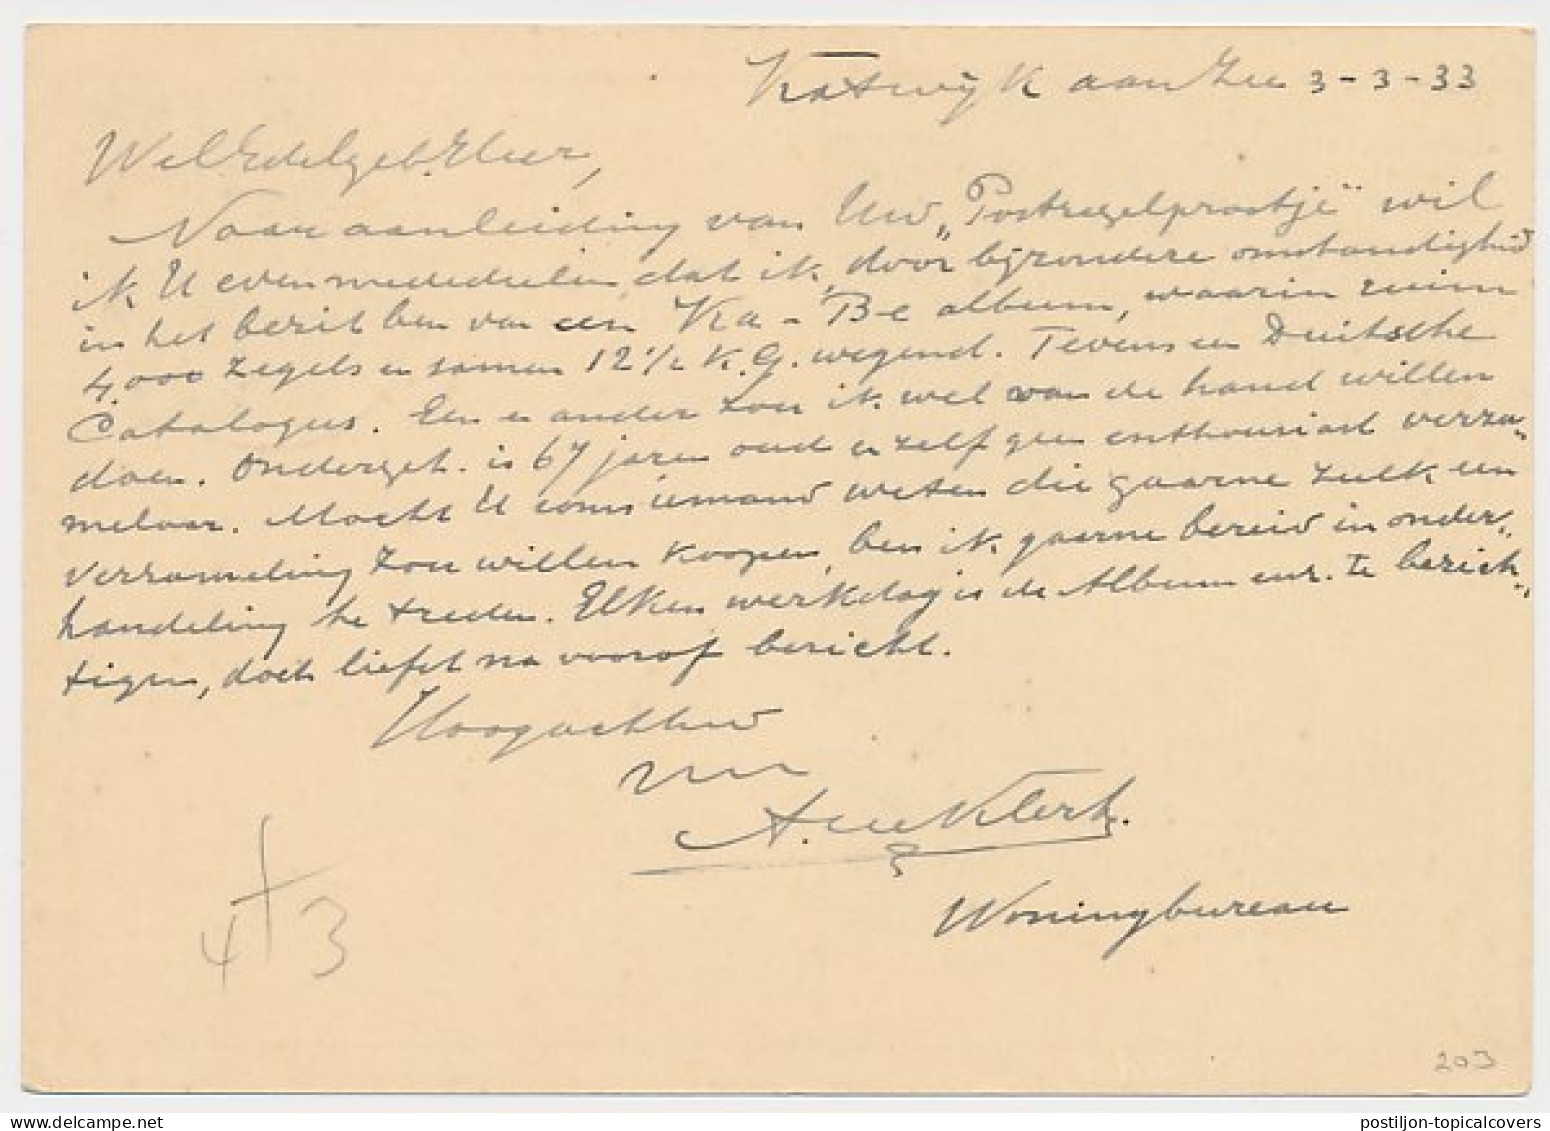 Katwijk aan Zee 3-3-33
WelEdelgeb. Heer,
Naar aanleiding van Uw „Postzegelpraatje" wil
ik U even mededeelen, dat ik, door bijzondere omstandigheid
in het bezit ben van een Ka-Be album, waarin ruim
4.000 zegels en samen 12 1/2 K.G. wegend. Tevens een Duitsche
Catalogus. Een en ander zou ik wel van de hand willen
doen. Onderget. is 67 jaren oud en zelf geen enthousiast verza-
melaar. Mocht U soms iemand weten die gaarne zulk een
verzameling zou willen koopen, ben ik gaarne bereid in onder-
handeling te treden. Elken werkdag is de Album enz. te bezich-
tigen, doch liefst na vooraf bericht.
Hoogachtend
A. de Klerk.
Woningbureau
4 + 3
203
delcampe.net
postiljon-topicalcovers